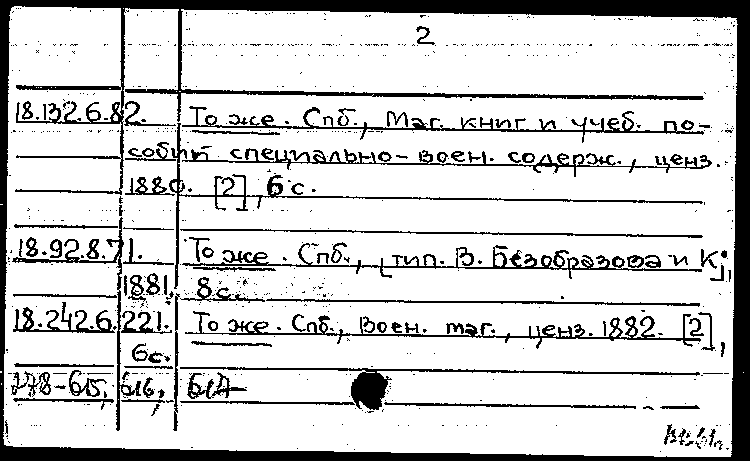 2
18.132.6.82. То же. Спб., Маг. книг и учеб. по-
собий специально-воен. содерж., ценз.
1880. [2], 6 с.
18.92.8.71. То же. Спб., [тип. В. Безобразова и К],
1881. 8 с.
18.242.6.221. То же. Спб., Воен. маг., ценз. 1882. [2],
6 с.
278-615, 616, 617